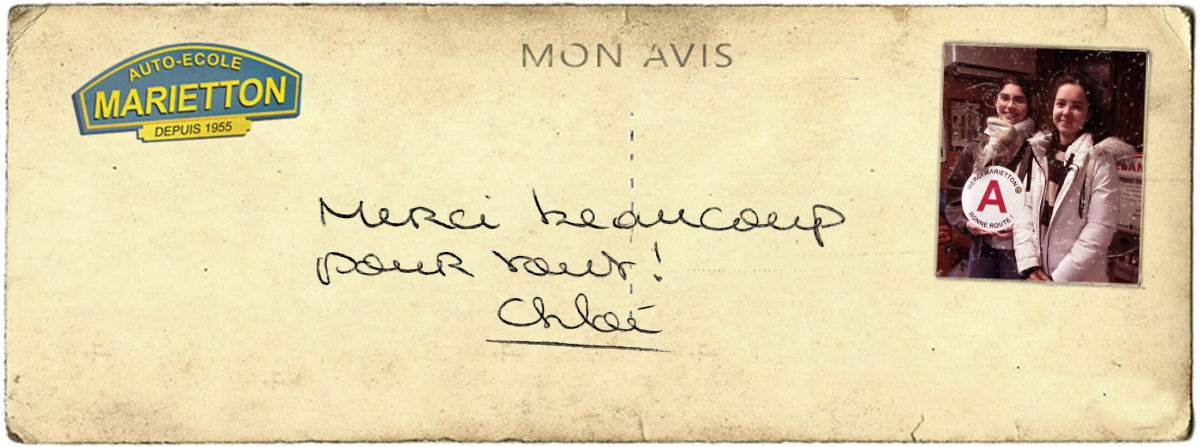 AUTO-ECOLE
MARIETTON
DEPUIS 1955
MON AVIS
MERCI MARIETTON
A
BONNE ROUTE !
Merci beaucoup
pour tout !
Chloé